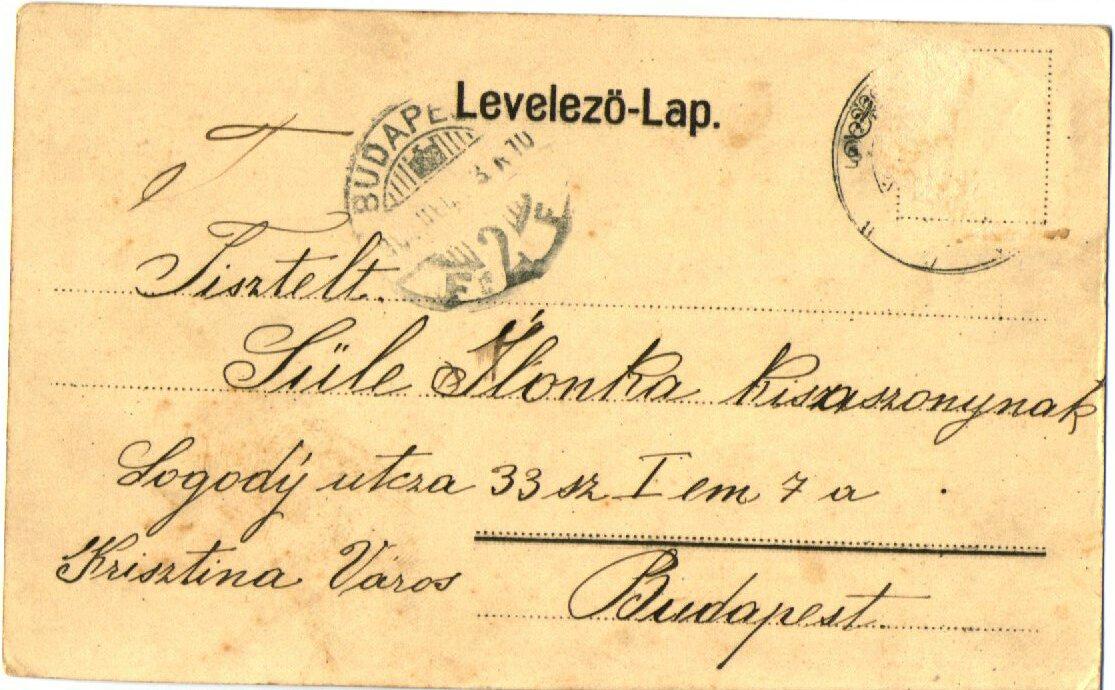 Levelezö-Lap.
BUDAPE
2
Tisztelt.
Süle Ilonka kiszaszonynak
Logodÿ utcza 33 sz I em 7 a
Krisztina Város
Budapest.